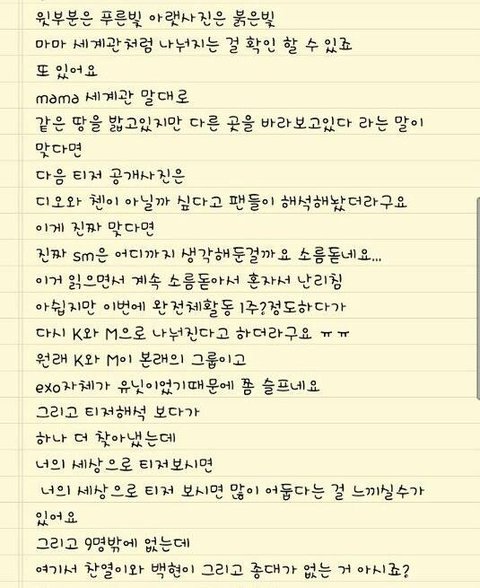 윗부분은 푸른빛 아랫사진은 붉은빛
마마 세계관처럼 나눠지는 걸 확인 할 수 있죠
또 있어요
mama 세계관 말대로
같은 땅을 밟고있지만 다른 곳을 바라보고있다 라는 말이
맞다면
다음 티저 공개사진은
디오와 첸이 아닐까 싶다고 팬들이 해석해놨더라구요
이게 진짜 맞다면
진짜 sm은 어디까지 생각해둔걸까요 소름돋네요...
이거 읽으면서 계속 소름돋아서 혼자서 난리침
아쉽지만 이번에 완전체활동 1주?정도하다가
다시 K와 M으로 나눠진다고 하더라구요 ㅠㅠ
원래 K와 M이 본래의 그룹이고
exo자체가 유닛이었기때문에 쫌 슬프네요
그리고 티저해석 보다가
하나 더 찾아냈는데
너의 세상으로 티저보시면
너의 세상으로 티저 보시면 많이 어둡다는 걸 느끼실수가
있어요
그리고 9명밖에 없는데
여기서 찬열이와 백현이 그리고 종대가 없는 거 아시죠?